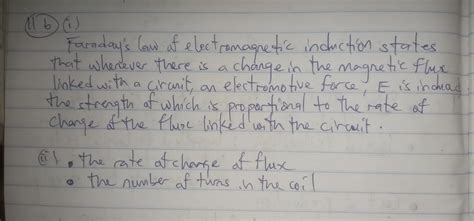 11 b (i)
Faraday's law of electromagnetic induction states
that whenever there is a change in the magnetic flux
linked with a circuit, an electromotive force, E is induced
the strength of which is proportional to the rate of
change of the flux linked with the circuit.
(ii) • the rate of change of flux
• the number of turns in the coil